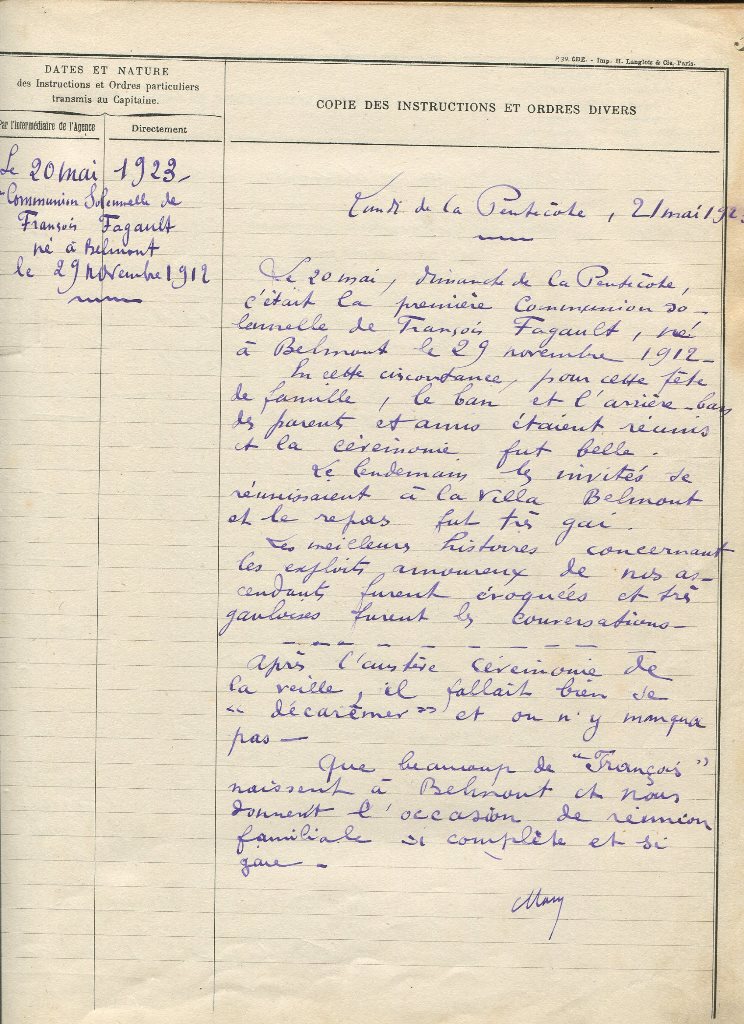 P.39. CDE. - Imp. H. Langlois & Cie, Paris.
DATES ET NATURE
des Instructions et Ordres particuliers
transmis au Capitaine.
COPIE DES INSTRUCTIONS ET ORDRES DIVERS
Par l'intermédiaire de l'Agence
Directement
Le 20 mai 1923 -
Communion Solennelle de
François Fagault
né à Belmont
le 29 novembre 1912
Lundi de la Pentecôte, 21 mai 1923
Le 20 mai, dimanche de la Pentecôte,
c'était la première communion so-
lennelle de François Fagault, né
à Belmont le 29 novembre 1912 -
En cette circonstance, pour cette fête
de famille, le ban et l'arrière-ban
des parents et amis étaient réunis
et la cérémonie fut belle.
Le lendemain les invités se
réunissaient à la villa Belmont
et le repas fut très gai.
Les meilleurs histoires concernant
les exploits amoureux de nos as-
cendants furent évoquées et très
gauloises furent les conversations -
Après l'austère cérémonie de
la veille, il fallait bien se
"décarêmer" et on n'y manqua
pas -
Que beaucoup de "François"
naissent à Belmont et nous
donnent l'occasion de réunion
familiale si complète et si
gaie -
Mary